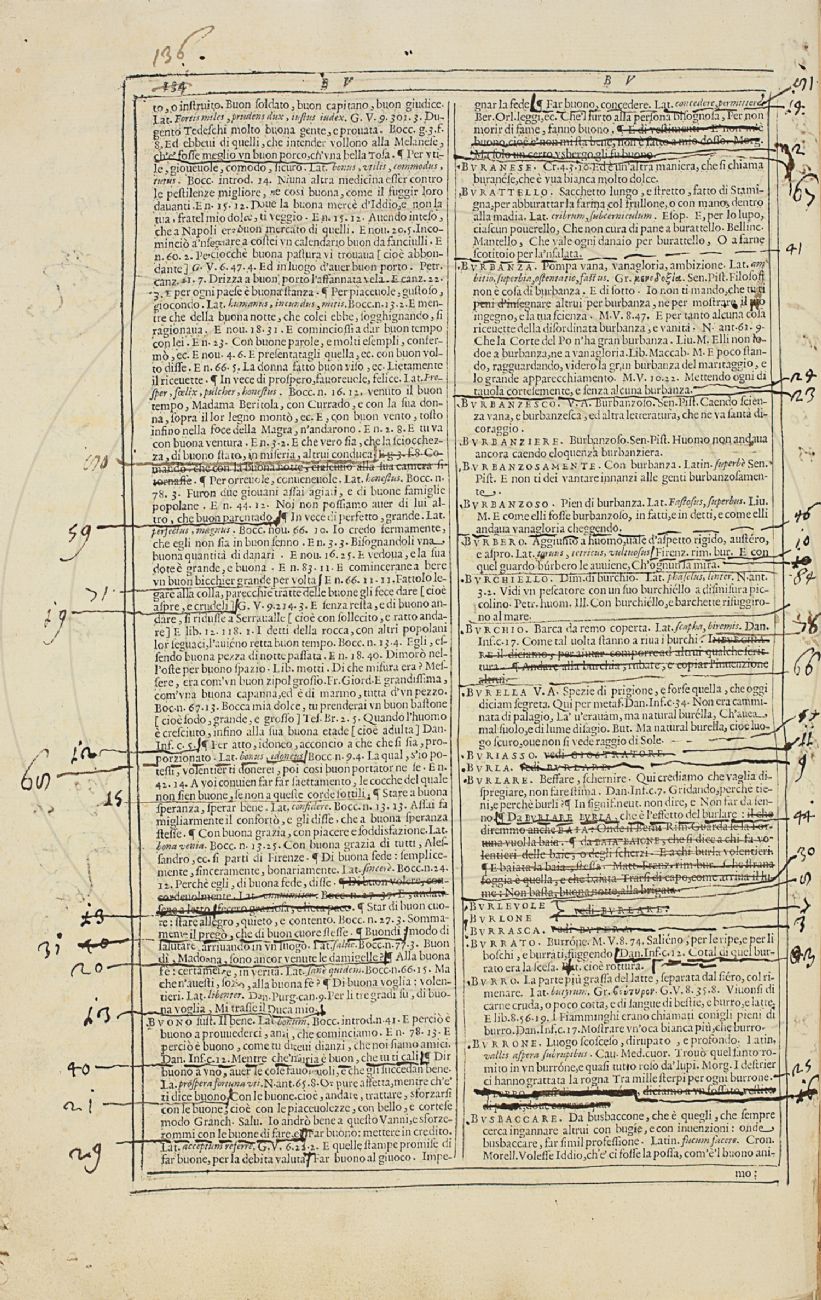 136
134
B V
to, o instruito. Buon soldato, buon capitano, buon giudice.
Lat. Fortis miles, prudens dux, iustus iudex. G. V. 9. 301. 3. Du-
gento Tedeschi molto buona gente, e prouata. Bocc. g. 3. f.
8. Ed ebbeui di quelli, che intender vollono alla Melanese,
che fosse meglio vn buon porco, ch'vna bella Tosa. ¶ Per vti-
le, gioueuole, comodo, sicuro. Lat. bonus, vtilis, commodus,
tutus. Bocc. introd. 14. Niuna altra medicina esser contro
le pestilenze migliore, ne così buona, come il fuggir loro
dauanti. En. 15. 12. Doue la buona mercè d'Iddio, e non la
tua, fratel mio dolce, ti veggio. En. 15. 12. Auendo inteso,
che a Napoli era buon mercato di quelli. E nou. 20. 5. Inco-
minciò a'nsegnare a costei vn calendario buon da fanciulli. E
n. 60. 2. Perciocchè buona pastura vi trouaua [cioè abbon-
dante] G. V. 6. 47. 4. Ed in luogo d'auer buon porto. Petr.
canz. 21. 7. Drizza a buon porto l'affannata vela. E canz. 22.
3. E per ogni paese è buona stanza. ¶ Per piaceuole, gustoso,
giocondo. Lat. humanus, iucundus, mitis. Bocc. n. 13. 2. E men-
tre che della buona notte, che colei ebbe, sogghignando, si
ragionaua. E nou. 18. 31. E cominciossi a dar buon tempo
con lei. E n. 23. Con buone parole, e molti esempli, confer-
mò, ec. E nou. 4. 6. E presentatagli quella, ec. con buon vol-
to disse. E n. 66. 5. La donna fatto buon viso, ec. Lietamente
il riceuette. ¶ In vece di prospero, fauoreuole, felice. Lat. Pro-
sper, fœlix, pulcher, honestus. Bocc. n. 16. 12. venuto il buon
tempo, Madama Beritola, con Currado, e con la sua don-
na, sopra il lor legno montò, ec. E, con buon vento, tosto
infino nella foce della Magra, n'andarono. E n. 2. 8. E tu va
con buona ventura. E n. 3. 2. E che vero sia, che la sciocchez-
za, di buono stato, in miseria, altrui conduca. E g. 3. f. 8. Co-
mando che con la buona notte, ciascuno alla sua camera si
tornasse. ¶ Per orreuole, conueneuole. Lat. honestus. Bocc. n.
78. 3. Furon due giouani assai agiati, e di buone famiglie
popolane. E n. 44. 12. Noi non possiamo auer di lui al-
tro, che buon parentado. ¶ In vece di perfetto, grande. Lat.
perfectus, magnus. Bocc. nou. 66. 10. Io credo fermamente,
che egli non sia in buon senno. E n. 3. 3. Bisognandoli vna
buona quantità di danari. E nou. 16. 25. E vedoua, e la sua
dote è grande, e buona. E n. 83. 11. E cominceranno a bere
vn buon bicchier grande per volta E n. 66. 11. 11. Fattolo le-
gare alla colla, parecchie tratte delle buone gli fece dare [cioè
aspre, e crudeli] G. V. 9. 214. 3. E senza resta, e di buono an-
dare, si ridusse a Serraualle [cioè con sollecito, e ratto anda-
re] E lib. 12. 118. 1. I detti della rocca, con altri popolani
lor seguaci, l'auieno retta buon tempo. Bocc. n. 13. 4. Egli, es-
sendo buona pezza di notte passata. E n. 18. 40. Dimorò nel-
l'oste per buono spazio. Lib. motti. Di che misura era? Mes-
sere, era com'vn buon zipol grosso. Fr. Giord. E grandissima,
com'vna buona capanna, ed è di marmo, tutta d'vn pezzo.
Boc. n. 67. 13. Bocca mia dolce, tu prenderai vn buon bastone
[cioè sodo, grande, e grosso] Tes. Br. 2. 5. Quando l'huomo
è cresciuto, infino alla sua buona etade [cioè adulta] Dan-
Inf. c. 5. ¶ Per atto, idoneo, acconcio a che che si sia, pro-
porzionato. Lat. bonus, idoneus Bocc. n. 94. La qual, s'io po-
tessi, volentier ti donerei, poi così buon portator ne se. E n.
42. 14. A voi conuien far far saettamento, le cocche del quale
non sien buone, se non a queste corde sottili. ¶ Stare a buona
speranza, sperar bene. Lat. confidere. Bocc. n. 13. 13. Assai fa
migliarmente il confortò, e gli disse. che a buona speranza
stesse. ¶ Con buona grazia, con piacere e soddisfazione. Lat.
bona venia. Bocc. n. 13. 25. Con buona grazia di tutti, Ales-
sandro, ec. si partì di Firenze. ¶ Di buona fede: semplice-
mente, sinceramente, bonariamente. Lat. sincerè. Bocc. n. 24.
12. Perchè egli, di buona fede, disse. ¶ Di buon volere, con-
¶ Star di buon cuo-
re: stare allegro, quieto, e contento. Bocc. n. 27. 3. Somma-
mente il pregò, che di buon cuore stesse. ¶ Buondì modo di
salutare, arriuando in vn luogo. Lat. salue. Bocc. n. 77. 3. Buon
dì, Madonna, sono ancor venute le damigelle? ¶ Alla buona
fè: certamente, in verità. Lat. sanè quidem. Bocc. n. 66. 15. Ma
che n'auesti, sozio, alla buona fè? ¶ Di buona voglia: volen-
tieri. Lat. libenter. Dan. Purg. can. 9. Per li tre gradi su, di buo-
na voglia, Mi trasse il Duca mio.
BVONO sust. Il bene. Lat. bonum. Bocc. introd. n. 41. E perciò è
buono a prouederci, anzi, che cominciamo. E n. 78. 13. E
perciò è buono, come tu diceui dianzi, che noi siamo amici.
Dan. Inf. c. 12. Mentre che'ntria è buon, che tu ti cali. ¶ Dir
buono a vno, auer le cose fauoreuoli, e che gli succedan bene.
La. prospera fortuna vti. N. ant. 65. 8. Or pure assetta, mentre ch'e'
ti dice buono. Con le buone. cioè, andare, trattare, sforzarsi
con le buone; cioè con le piaceuolezze, con bello, e cortese
modo Granch. Salu. Io andrò bene a questo Vanni, e sforze-
rommi con le buone di fare, ec. Far buono: mettere in credito.
Lat. acceptum referre. G. V. 6. 22. 2. E quelle stampe promise di
far buone, per la debita valuta. Far buono al giuoco. Impe-
B V
gnar la fede. ¶ Far buono, concedere. Lat. concedere, permittere.
Ber. Orl. leggi, ec. Che'l furto alla persona bisognosa, Per non
morir di fame, fanno buono. ¶ E di vestimenti. E non mi è
buono, cioè e' non mi sta bene, non è fatto a mio dosso. Morg.
Ma solo un certo vsbergo gli fu buono.
BVRANESE. Cr. 4. 3. 10. Ed è un'altra maniera, che si chiama
buranese, che è vua bianca molto dolce.
BVRATTELLO. Sacchetto lungo, e stretto, fatto di Stami-
gna, per abburattar la farina col frullone, o con mano, dentro
alla madia. Lat. cribrum, subcerniculum. Esop. E, per lo lupo,
ciascun pouerello, Che non cura di pane a burattello. Bellinc.
Mantello, Che vale ogni danaio per burattello, O a farne
scotitoio per la'nsalata.
BVRBANZA. Pompa vana, vanagloria, ambizione. Lat. am
bitio, superbia, ostentatio, fastus. Gr. κενοδοξία. Sen. Pist. Filosofi
non è cosa di burbanza. E di sotto. Io non ti mando, che tu ti
peni d'insegnare altrui per burbanza, ne per mostrare il tuo
ingegno, e la tua scienza. M. V. 8. 47. E per tanto alcuna cosa
riceuette della disordinata burbanza, e vanità. N. ant. 61. 9.
Che la Corte del Po n'ha gran burbanza. Liu. M. Elli non lo-
doe a burbanza, ne a vanagloria. Lib. Maccab. M. E poco stan-
do, ragguardando, videro la gran burbanza del maritaggio, e
lo grande apparecchiamento. M. V. 10. 22. Mettendo ogni dì
tauola cortesemente, e senza alcuna burbanza.
BVRBANZESCO. V. A. Burbanzoso. Sen. Pist. Caendo scien-
za vana, e burbanzesca, ed altra letteratura, che ne va santà di-
coraggio.
BVRBANZIERE. Burbanzoso. Sen. Pist. Huomo non andaua
ancora caendo eloquenza burbanziera.
BVRBANZOSAMENTE. Con burbanza. Latin. superbè Sen.
Pist. E non ti dei vantare innanzi alle genti burbanzosamen-
te.
BVRBANZOSO. Pien di burbanza. Lat. Fastosus, superbus. Liu.
M. E come elli fosse burbanzoso, in fatti, e in detti, e come elli
andaua vanagloria cheggendo.
BVRBERO. Aggiunto a huomo, uale d'aspetto rigido, austéro,
e aspro. Lat. toruus, tetricus, vultuosus. Firenz. rim. bur. E con
quel guardo búrbero le auuiene, Ch'ognun la mira.
BVRCHIELLO. Dim. di burchio. Lat. phaselus, linter. N. ant.
3. 2. Vidi vn pescatore con un suo burchiello a disimisura pic-
colino. Petr. huom. Ill. Con burchiello, e barchette risuggiro-
no al mare.
BVRCHIO. Barca da remo coperta. Lat. scapha, biremis. Dan.
Inf. c. 17. Come tal uolta stanno a riua i burchi. IMBVRCHIA-
RE il diciamo, per aiutar comporre ad altrui qualche scrit-
tura. ¶ Andare alla burchia, rubare, e copiar l'inuenzione
altrui.
BVRELLA V. A. Spezie di prigione, e forse quella, che oggi
diciam segreta. Quì per metaf. Dan. Inf. c. 34. Non era cammi-
nata di palagio, Là'u'erauam, ma natural burélla, Ch'auea
mal suolo, e di lume disagio. But. Ma natural burella, cioè luo-
go scuro, oue non si vede raggio di Sole.
BVRIASSO. vedi GIOSTRATORE.
BVRLA. vedi BVRLARE.
BVRLARE. Beffare, schernire. Qui crediamo che vaglia di-
spregiare, non fare stima. Dan. Inf. c. 7. Gridando, perche tie-
ni, e perchè burli? ¶ In signif. neut. non dire, e Non far da sen-
no. ¶ Da BVRLARE BVRLA, che è l'effetto del burlare: il che
diremmo anche BAIA. Onde il Berni Rim. Guarda se la For-
tuna vuol la baia. ¶ da BAIA BAIONE, che si dice a chi fa vo-
lentieri delle baie, o degli scherzi. E a chi burla volentieri.
¶ E baiata la baia, stessa. Matt. Franz. rim. bur. Che strana
foggia è quella, e che baiata Trarsi di capo, come arriua il lu-
me; Non basta, buona notte, alla brigata.
BVRLEVOLE
BVRLONE
vedi BVRLARE.
BVRRASCA. vedi BVFERA.
BVRRATO. Burróne. M. V. 8. 74. Saliéno, per le ripe, e per li
boschi, e burrati, fuggendo. Dan. Inf. c. 12. Cotal di quel bur-
rato era la scesa. But. cioè rottura.
BVRRO. La parte più grassa del latte, separata dal siéro, col ri-
menare. Lat. butyrum. Gr. βούτυρον. G. V. 8. 35. 8. Viuonsi di
carne cruda, o poco cotta, e di sangue di bestie, e burro, e latte.
E lib. 8. 56. 19. I Fiamminghi erano chiamati conigli pieni di
burro. Dan. Inf. c. 17. Mostrare vn'oca bianca più, che burro.
BVRRONE. Luogo scosceso, dirupato, e profondo. Latin.
vallis aspera subrupibus. Cau. Med. cuor. Trouò quel santo ro-
mito in vn burróne, e quasi tutto roso da' lupi. Morg. I destrier
ci hanno grattata la rogna Tra mille sterpi per ogni burrone.
BVSBACCARE. Da busbaccone, che è quegli, che sempre
cerca ingannare altrui con bugie, e con inuenzioni: onde
busbaccare, far simil professione. Latin. fucum facere. Cron.
Morell. Volesse Iddio, ch'e' ci fosse la possa, com'è'l buono ani-
mo:
59
71
19
12
65
15
13
31
20
13
40
21
29
2
65
41
24
23
46
10
84
38
66
11
9
44
30
3
25